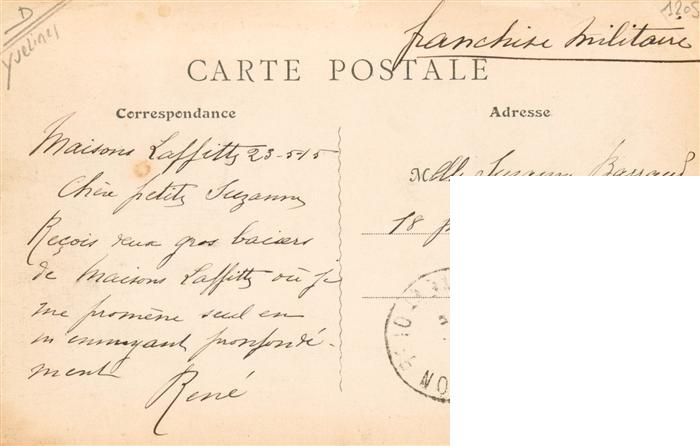 D
Yvelines
1205
franchise militaire
CARTE POSTALE
Correspondance
Adresse
Maisons Laffitte 23-5-15
Chère petite Suzanne
Reçois deux gros baisers
de Maisons Laffitte où je
me promène seul en
m'ennuyant pronfondé-
ment
René
Mlle Suzanne Barraud
18